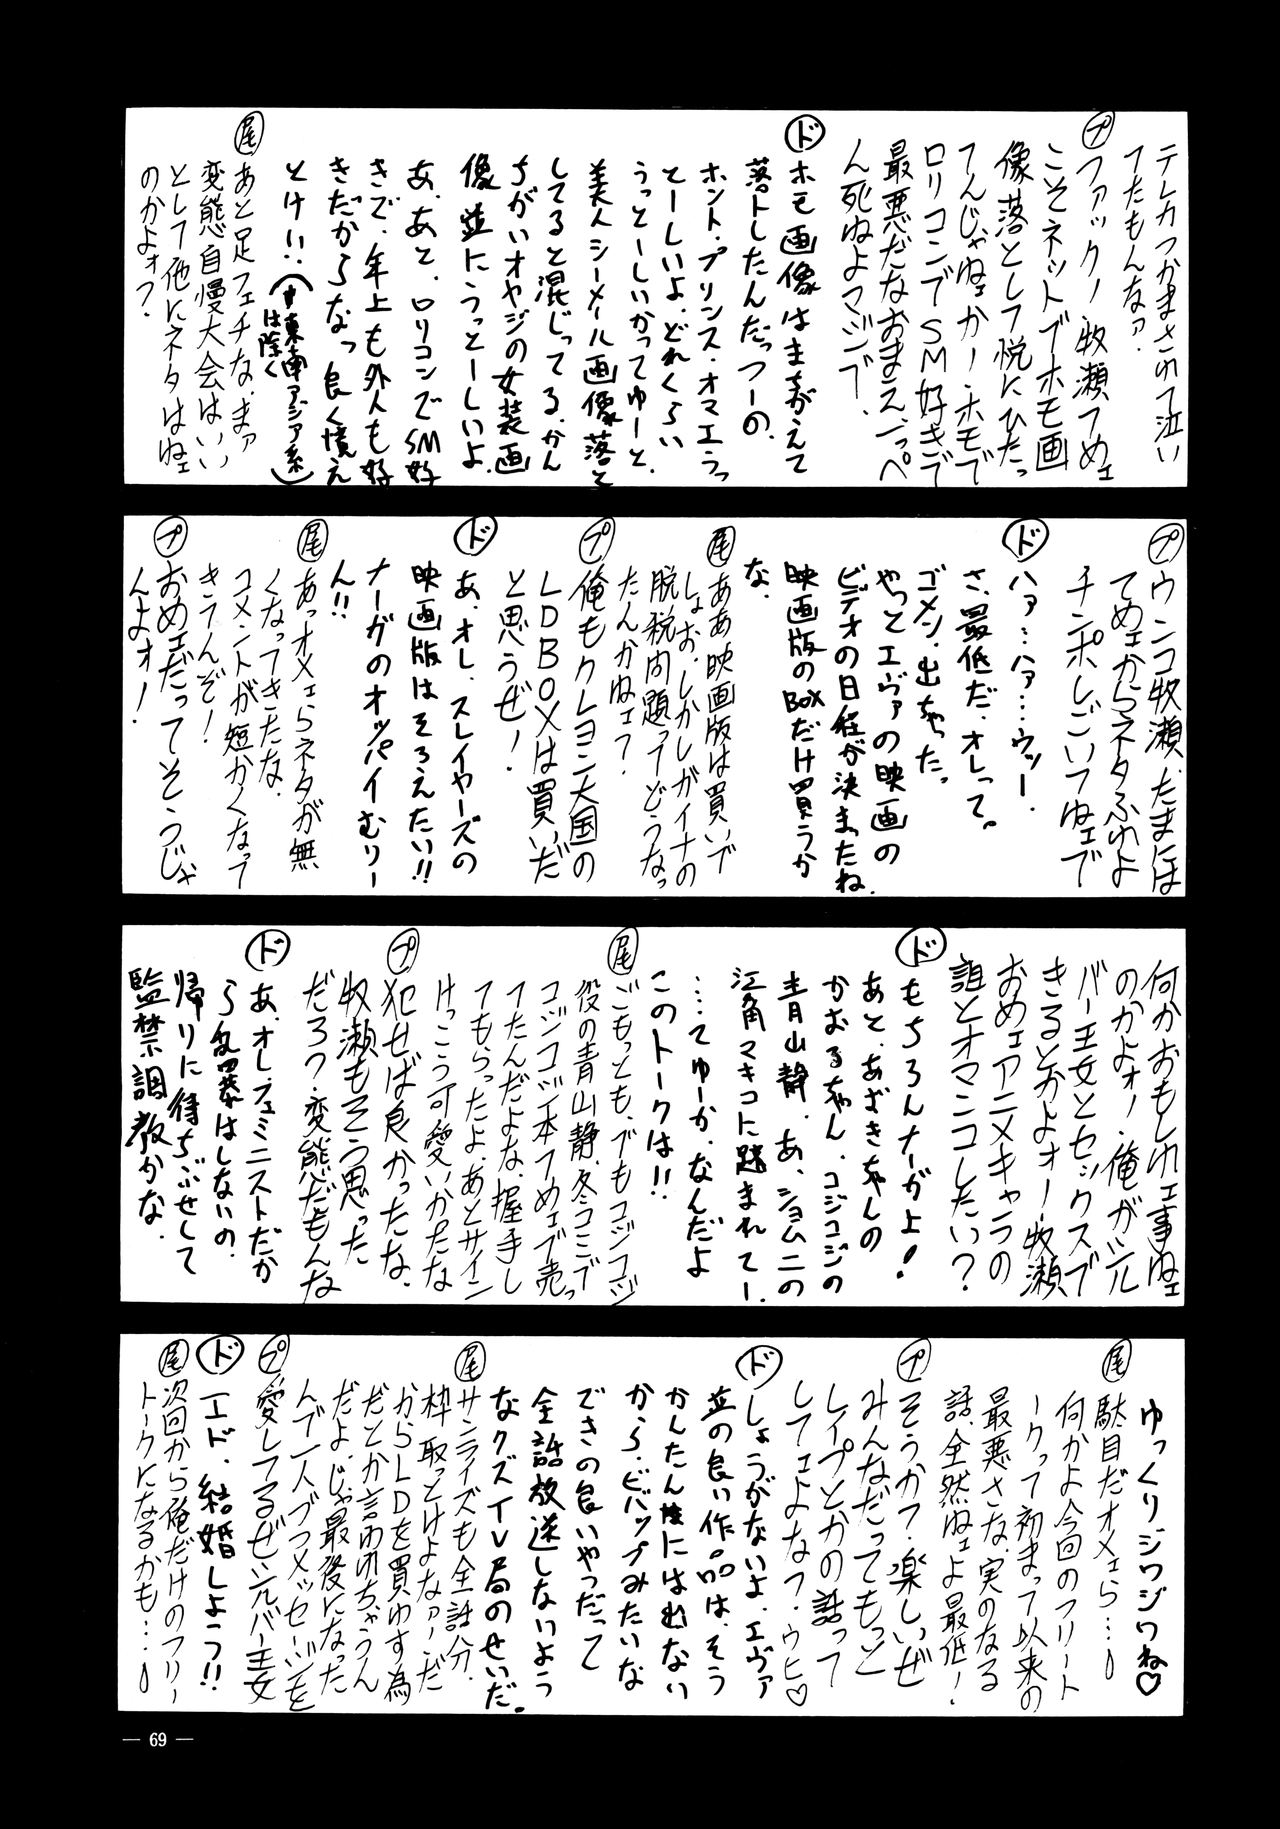 テレカつかまされて泣い
てたもんなァ.
プ ファック!牧瀬てめェ
こそネットでホモ画
像落として悦にひたっ
てんじゃねェかー.ホモで
ロリコンでSM好きで
最悪だなおまえ.いっぺ
ん死ねよマジで.
ド ホモ画像はまちがえて
落トしたんだっつーの.
ホント.プリンス.オマエうっ
とーしいよ.どれくらい
うっとーしいかってゆーと.
美人シーメール画像落と
してると混じってる.かん
ちがいオヤジの女装画
像並にうっとーしいよ.
あ.あと.ロリコンでSM好
きで.年上も外人も好
きだからなっ良く憶え
とけ!!.(東南アジア系)
は除く
尾 あと足フェチな.まァ
変態自慢大会はいい
として他にネタはねェ
のかよォ?.
プ ウンコ牧瀬.たまには
てめェからネタふれよ
チンポしごいてねェで
ド ハァ…ハァ…ウッー.
さ.最低だ.オレって。
ゴメン.出ちゃった
やっとエヴァの映画の
ビデオの日程が決まったね.
映画版のBOXだけ買うか
な.
尾 ああ映画版は買いで
しょお.しかしガイナの
脱税問題ってどうなっ
たんかねェ?
プ 俺もクレヨン大国の
LDBOXは買いだ
と思うぜ!
ド あ.オレ.スレイヤーズの
映画版はそろえたい!!
ナーガのオッパイむりー
ん!!
尾 あっオメェらネタが無
くなってきたな.
コメントが短かくなって
きてんぞ!
プ おめェだってそうじゃ
んよォ!
何かおもしれェ事ねェ
のかよォ!.俺がシル
バー王女とセックスで
きるとかよォー.牧瀬
おめェアニメキャラの
誰とオマンコしたい?
ド もちろんナーガよ!
あと.あずきちゃんの
かおるちゃん.コジコジの
青山静.あ、ショムニの
江角マキコに踏まれてー.
…てゆーか.なんだよ
このトークは!!
尾 ごもっとも.でもコジコジ
役の青山静.冬コミで
コジコジ本てめェで売っ
てたんだよな.握手し
てもらったよ.あとサイン
けっこう可愛いかったな
プ 犯せば良かったな.
牧瀬もそう思った
だろ?.変態だもんな
ド あ.オレ.フェミニストだか
ら乱暴はしないの.
帰りに待ちぶせして
監禁調教かな
ゆっくりジワジワね♡
尾 駄目だオメェら…。
何かよ今回のフリート
ークって初まって以来の
最悪さな.実のなる
話.全然ねェよ最低!
プ そうか?.楽しいぜ
みんなだってもっと
レイプとかの話って
してェよな?.ウヒ♡
ド しょうがないよ.エヴァ
並の良い作品は.そう
かんたんには出ない
から.ビバップみたいな
できの良いやつだって
全話放送しないよう
なクズTV局のせいだ。
尾 サンライズも全話分.
枠取っとけよなァ!.だ
からLDを買わす為
だとか言われちゃうん
だよ.じゃ最後になった
んで一人づつメッセージを
プ 愛してるぜシルバー王女
ド エド、結婚しよう!!
尾 次回から俺だけのフリー
トークになるかも…。
— 69 —